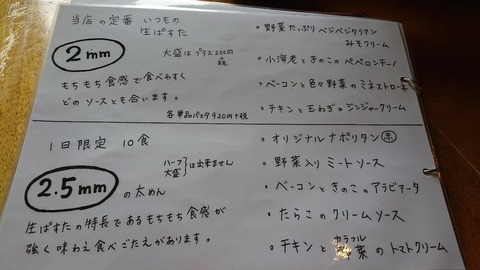 当店の定番 いつもの
生ぱすた
2mm
大盛はプラス200円
+税
もちもち食感で食べやすく
どのソースとも合います。
各単品パスタ920円+税
・野菜たっぷりベジベジタリアン
みそクリーム
・小海老ときのこのペペロンチーノ
・ベーコンと色々野菜のミネストローネ
・チキンと玉ねぎのジンジャークリーム
1日限定 10食
2.5mm の太めん
ハーフ
大盛
は出来ません
生ぱすたの特長であるもちもち食感が
強く味わえ食べごたえがあります。
・オリジナルナポリタン 赤
・野菜入りミートソース
・ベーコンときのこのアラビアータ
・たらこのクリームソース
・チキンとカラフル野菜のトマトクリーム